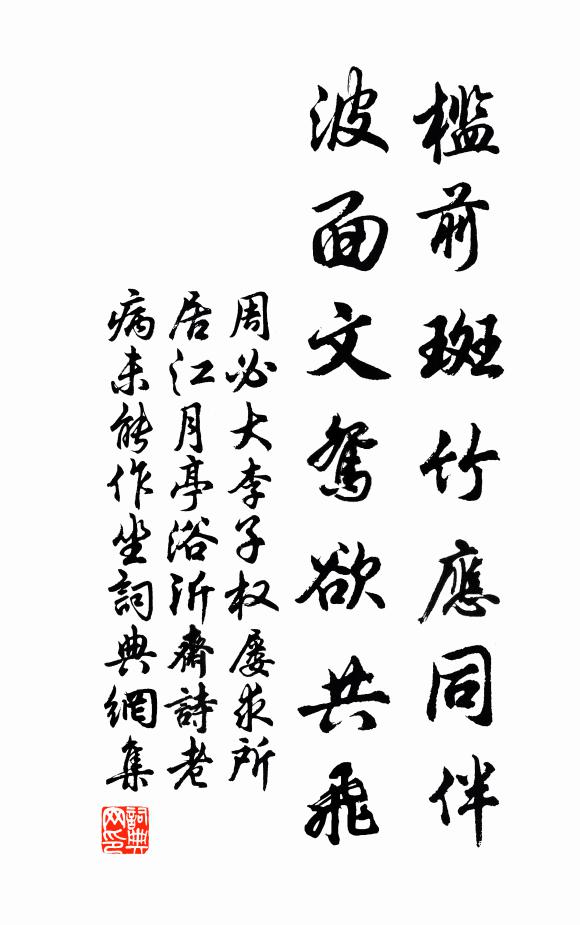 槛前斑竹應同伴
波面文鸳欲共飛
周必大李子权屡求所
居江月亭浴沂齋詩老
病未能作坐詞典網集
詞典网印